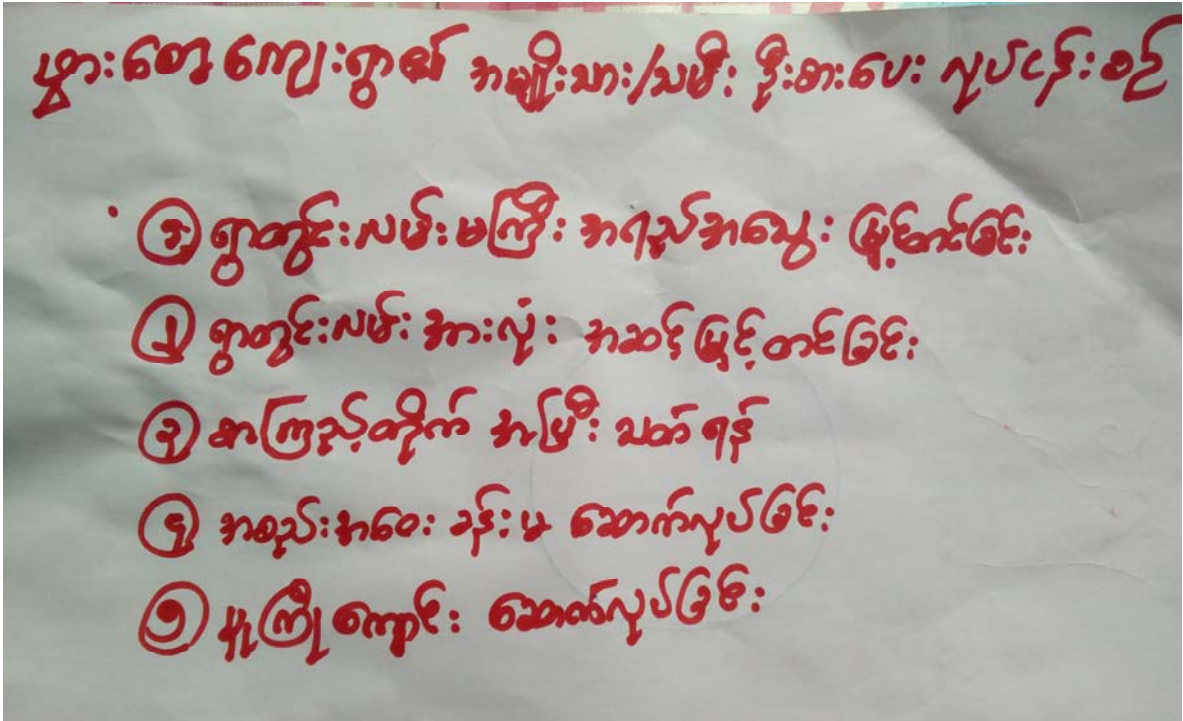 ဖွားစော ကျေးရွာ၏ အမျိုးသား/သမီး ဦးစားပေး လုပ်ငန်းစဉ်
၁ ရွာတွင်းလမ်းမကြီး အရည်အသွေး မြှင့်တင်ခြင်း
၂ ရွာတွင်းလမ်း အားလုံး အဆင့်မြှင့်တင်ခြင်း
၃ စာကြည့်တိုက် အပြီး သတ်ရန်
၄ အစည်းအဝေး ခန်းမ ဆောက်လုပ်ခြင်း
၅ မူကြို ကျောင်း ဆောက်လုပ်ခြင်း